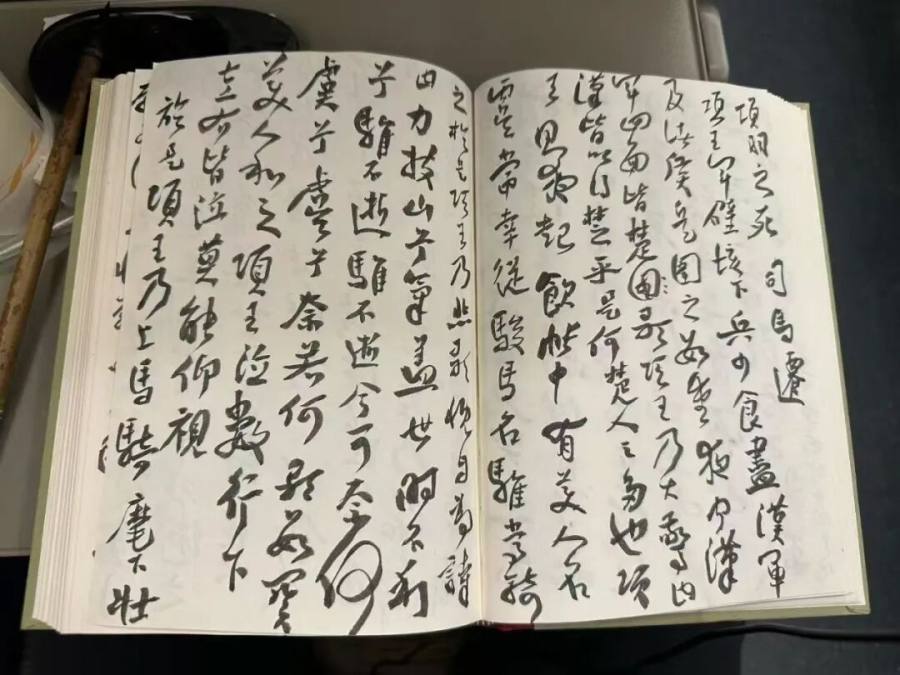 項羽之死 司馬遷
項王軍壁垓下兵少食盡漢軍
及諸侯兵圍之數重夜聞漢
軍四面皆楚國歌項王乃大驚曰
漢皆已得楚乎是何楚人之多也項
王則夜起飲帳中有美人名
虞常幸從駿馬名騅常騎
之於是項王乃悲歌慨自為詩
曰力拔山兮氣蓋世時不利
兮騅不逝騅不逝兮可奈何
虞兮虞兮奈若何歌數闋
美人和之項王泣數行下
左右皆泣莫能仰視
於是項王乃上馬騎麾下壯